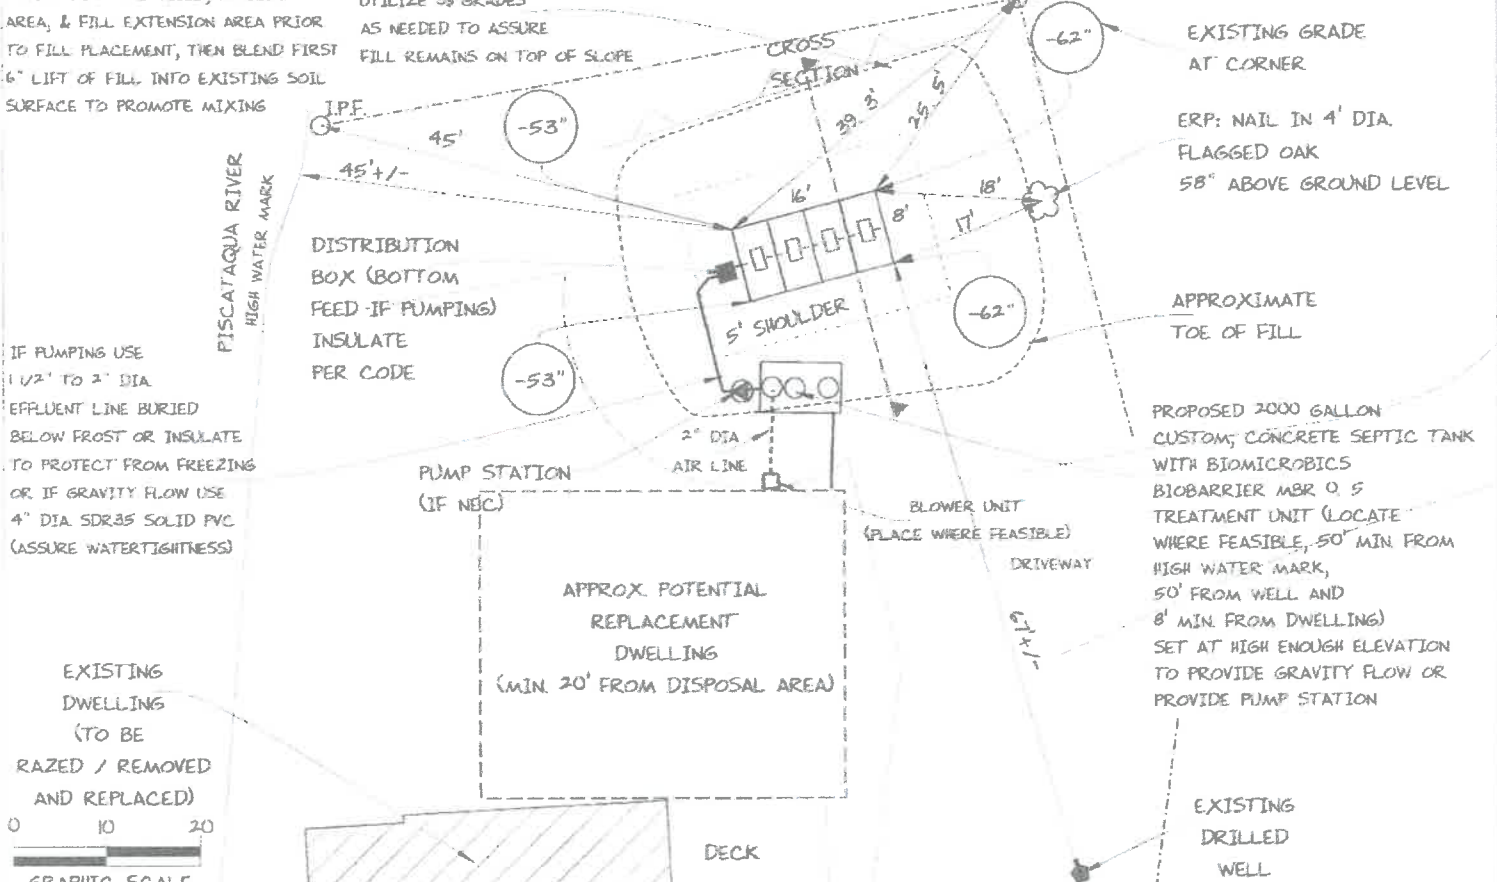 AREA, & FILL EXTENSION AREA PRIOR
TO FILL PLACEMENT, THEN BLEND FIRST
6" LIFT OF FILL INTO EXISTING SOIL
SURFACE TO PROMOTE MIXING
UTILIZE GRADES
AS NEEDED TO ASSURE
FILL REMAINS ON TOP OF SLOPE
CROSS
SECTION
-62"
EXISTING GRADE
AT CORNER
I.P.F.
45'
-53"
39. 3'
25. 5'
ERP: NAIL IN 4' DIA.
FLAGGED OAK
58" ABOVE GROUND LEVEL
45'+/-
PISCATAQUA RIVER
HIGH WATER MARK
16'
8'
18'
17'
DISTRIBUTION
BOX (BOTTOM
FEED IF PUMPING)
INSULATE
PER CODE
5' SHOULDER
-62"
APPROXIMATE
TOE OF FILL
-53"
IF PUMPING USE
1 1/2" TO 2" DIA
EFFLUENT LINE BURIED
BELOW FROST OR INSULATE
TO PROTECT FROM FREEZING
OR IF GRAVITY FLOW USE
4" DIA. SDR35 SOLID PVC
(ASSURE WATERTIGHTNESS)
2" DIA
AIR LINE
PUMP STATION
(IF NEC)
BLOWER UNIT
(PLACE WHERE FEASIBLE)
DRIVEWAY
PROPOSED 2000 GALLON
CUSTOM, CONCRETE SEPTIC TANK
WITH BIOMICROBICS
BIOBARRIER MBR 0. 5
TREATMENT UNIT (LOCATE
WHERE FEASIBLE, 50' MIN. FROM
HIGH WATER MARK,
50' FROM WELL AND
8' MIN. FROM DWELLING)
SET AT HIGH ENOUGH ELEVATION
TO PROVIDE GRAVITY FLOW OR
PROVIDE PUMP STATION
67'+/-
APPROX. POTENTIAL
REPLACEMENT
DWELLING
(MIN. 20' FROM DISPOSAL AREA)
EXISTING
DWELLING
(TO BE
RAZED / REMOVED
AND REPLACED)
0 10 20
GRAPHIC SCALE
DECK
EXISTING
DRILLED
WELL